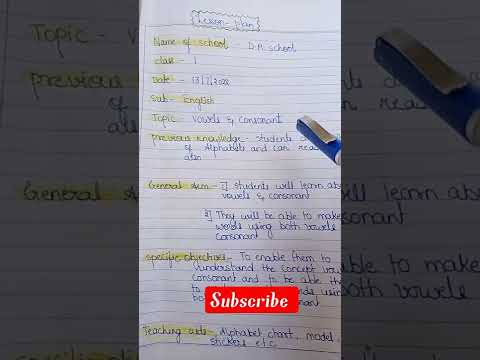 Lesson-Plan
Name of school - D.A school
class - 1
Date - 13/7/2022
Sub - English
Topic - vowels & consonant
previous knowledge - students
of Alphabets and can rea
also
General Aim - 1] students will learn abo
vowels & consonant
2] They will be able to make
words using both vowels
consonant
specific objectives - To enable them to
understand the concept vow
consonant and to be able the
to
bo
Subscribe
Teaching aids - Alphabet chart, model,
stickers etc.
Topic - v
previous
of
also
General
ill learn abo
onant
ble to make
oth vowels